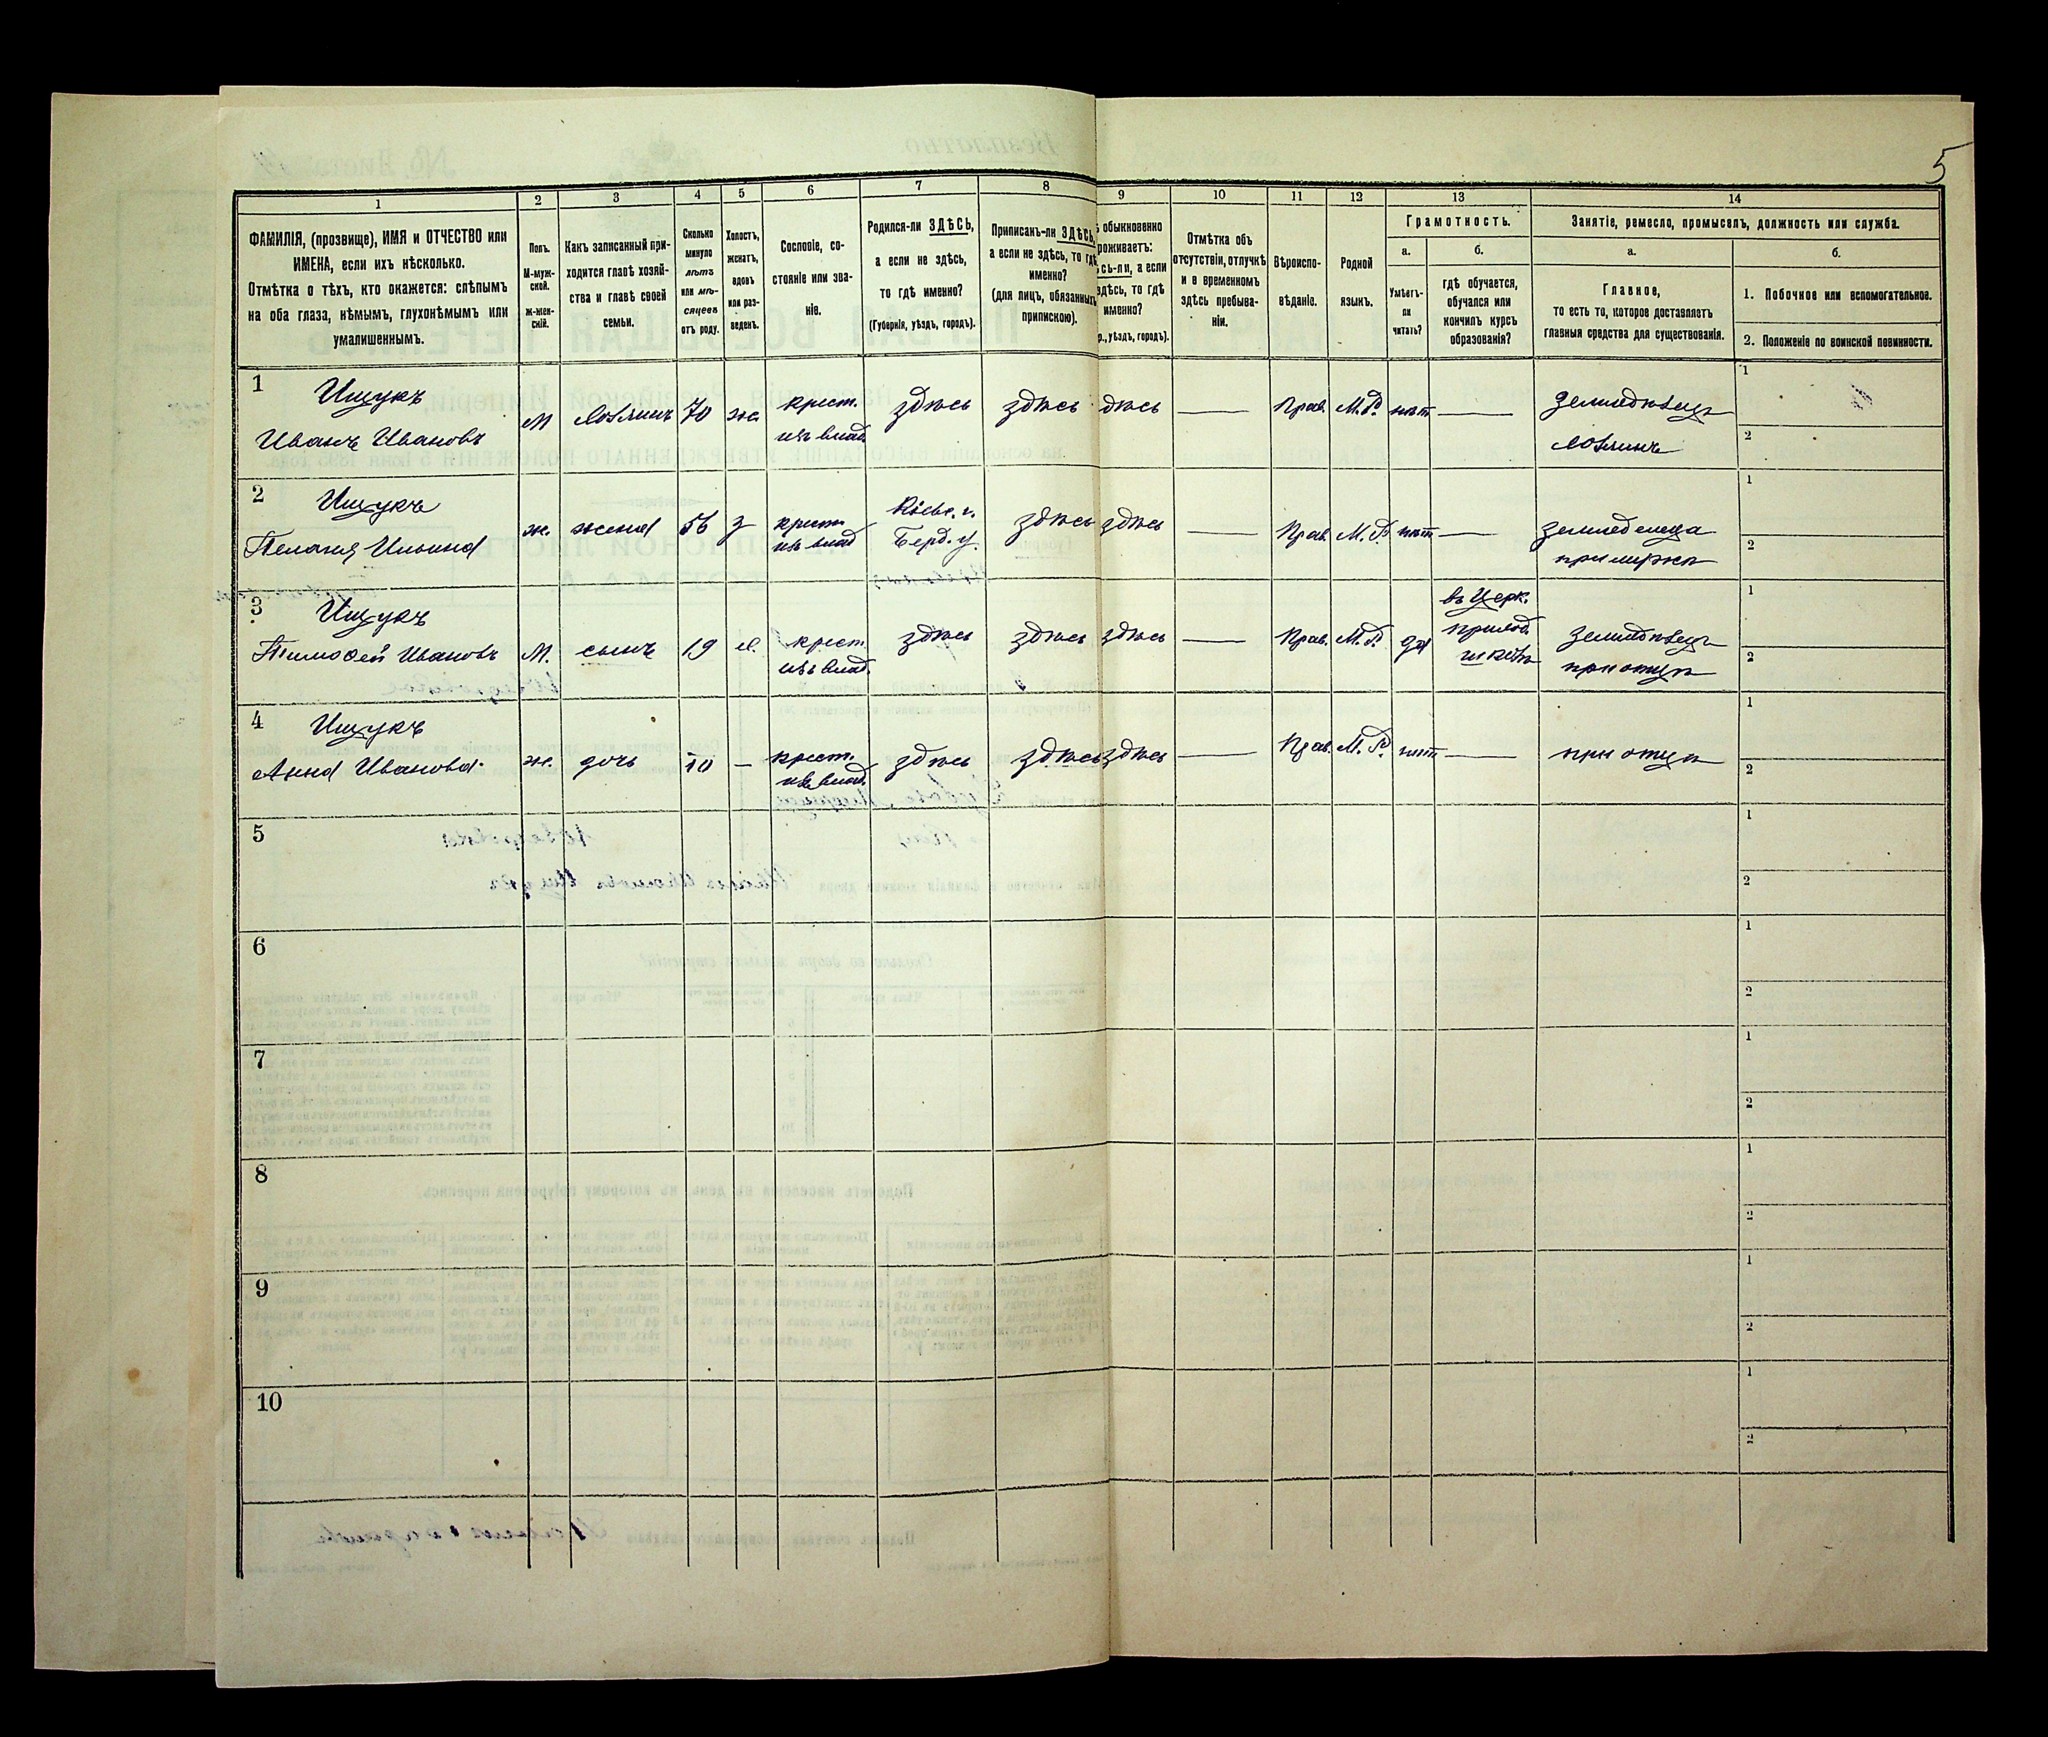 5
1 2 3 4 5 6 7 8 9 10 11 12 13 14
ФАМИЛІЯ, (прозвище), ИМЯ и ОТЧЕСТВО или
ИМЕНА, если ихъ нѣсколько.
Отмѣтка о тѣхъ, кто окажется: слѣпымъ
на оба глаза, нѣмымъ, глухонѣмымъ или
умалишеннымъ.
Полъ.
М-муж-
ской.
ж-жен-
скій.
Какъ записанный при-
ходится главѣ хозяй-
ства и главѣ своей
семьи.
Сколько
минуло
лѣтъ
или мѣ-
сяцевъ
отъ роду.
Холостъ,
женатъ,
вдовъ
или раз-
веденъ.
Сословіе, со-
стояніе или зва-
ніе.
Родился-ли ЗДѢСЬ,
а если не здѣсь,
то гдѣ именно?
(Губернія, уѣздъ, городъ).
Приписанъ-ли ЗДѢСЬ,
а если не здѣсь, то гдѣ
именно?
(для лицъ, обязанныхъ
припискою).
обыкновенно
роживаетъ:
сь-ли, а если
здѣсь, то гдѣ
именно?
р., уѣздъ, городъ).
Отмѣтка объ
отсутствіи, отлучкѣ
и в временномъ
здѣсь пребыва-
ніи.
Вѣроиспо-
вѣданіе.
Родной
языкъ.
Грамотность.
а. б.
Умѣетъ-
ли
читать?
гдѣ обучается,
обучался или
кончилъ курсъ
образованія?
Занятіе, ремесло, промыселъ, должность или служба.
а. б.
Главное,
то есть то, которое доставляетъ
главныя средства для существованія.
1. Побочное или вспомогательное.
2. Положеніе по воинской повинности.
1 Ищукъ
Иванъ Ивановъ М хозяинъ 70 ж. крест. изъ влад. здѣсь здѣсь дѣсь — Прав. М.Р. нѣт — земледѣлецъ
хозяинъ
1
2
2 Ищукъ
Пелагія Ильина ж. жена 56 з крест. изъ влад Кіевс. г. Берд. у. здѣсь здѣсь — Прав. М.Р. нѣт — земледелеца
при мужѣ
1
2
3 Ищукъ
Тимофей Ивановъ М. сынъ 19 х. крест. изъ влад. здѣсь здѣсь здѣсь — Прав. М.Р. да въ Церк. приход. школѣ земледѣлецъ
при отцѣ
1
2
4 Ищукъ
Анна Иванова ж. дочь 10 — крест. изъ влад. здѣсь здѣсь здѣсь — Прав. М.Р. нѣт — при отцѣ
1
2
5
1
2
6
1
2
7
1
2
8
1
2
9
1
2
10
1
2